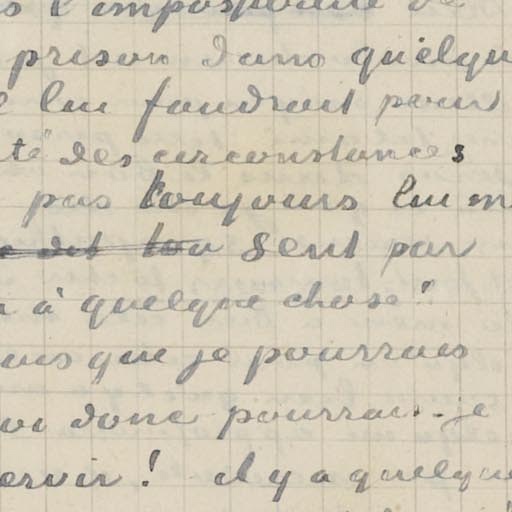 s l'impossibilité de
prison dans quelqu
e lui faudrait pour
té des circonstances
pas toujours lui m
sent par
à quelque chose!
ais que je pourrais
oi donc pourrais-je
ervir! il y a quelque